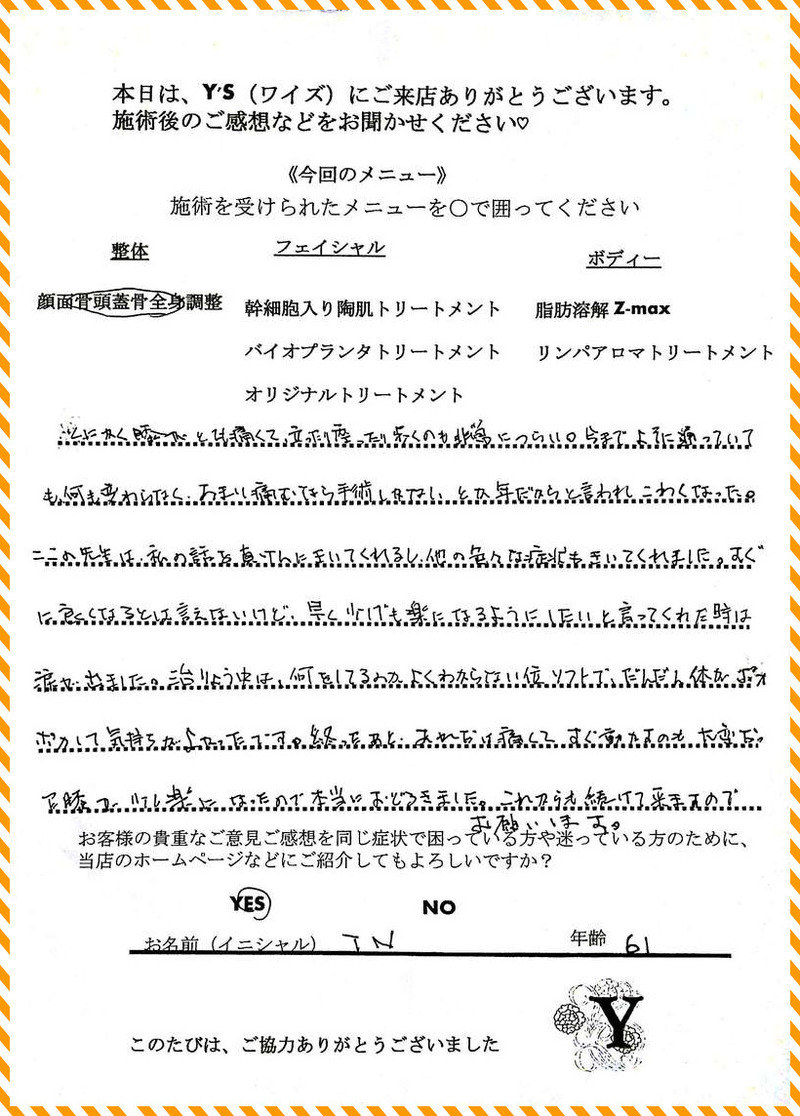 本日は、Y'S（ワイズ）にご来店ありがとうございます。
施術後のご感想などをお聞かせください♡
《今回のメニュー》
施術を受けられたメニューを〇で囲ってください
整体
フェイシャル
ボディー
顔面骨頭蓋骨全身調整
幹細胞入り陶肌トリートメント
脂肪溶解 Z-max
バイオプランタトリートメント
リンパアロマトリートメント
オリジナルトリートメント
とにかく膝がとても痛くて、立ったり座ったり歩くのも非常につらい。今までよそに通っていて
も何も変わらなく、あまり痛むなら手術しかない とか年だからと言われこわくなった。
ここの先生は、私の話を真けんにきいてくれるし、他の色々な症状もきいてくれました。すぐ
に良くなるとは言えないけど、早く少しでも楽になるようにしたいと言ってくれた時は
涙が出ました。治りょう中は、何をしてるのかよくわからない位ソフトで、だんだん体がポカ
ポカして気持ちがよかったです。終ったあと、あれだけ痛くて すぐ動かすのも大変だっ
た膝が、少し楽になったので本当におどろきました。これからも続けて来ますので
お願いします。
お客様の貴重なご意見ご感想を同じ症状で困っている方や迷っている方のために、
当店のホームページなどにご紹介してもよろしいですか？
YES
NO
お名前（イニシャル） T N
年齢 61
Y
このたびは、ご協力ありがとうございました